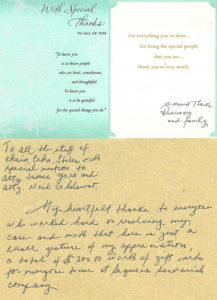 With Special
Thanks
TO ALL OF YOU
"To know you
is to know people
who are kind, considerate,
and thoughtful
To know you
is to be grateful
for the special things you do."
For everything you've done...
for being the special people
that you are...
thank you so very much.
Thanks
Rosemary
and family
To all the staff of
Chain, Cohn, Stiles with
special mention to
Atty James Yoro and
Atty Neil
My heartfelt thanks to everyone
who worked hard on resolving my
case and with that here is just a
small gesture of my appreciation,
a total of $300.00 in works of gift cards
for everyone to use at Sequoia Sandwich
Company.